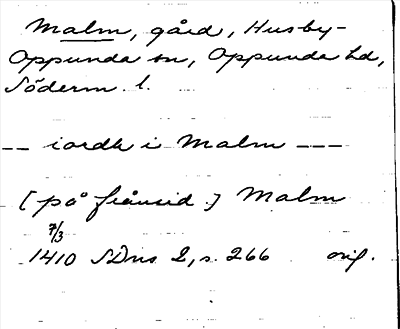 Malm, gård, Husby-
Oppunda sn, Oppunda hd,
Söderm. l.
-- iordh i Malm ---
[på frånsid.] Malm
7/3
1410 SDns 2, s. 266 orig.